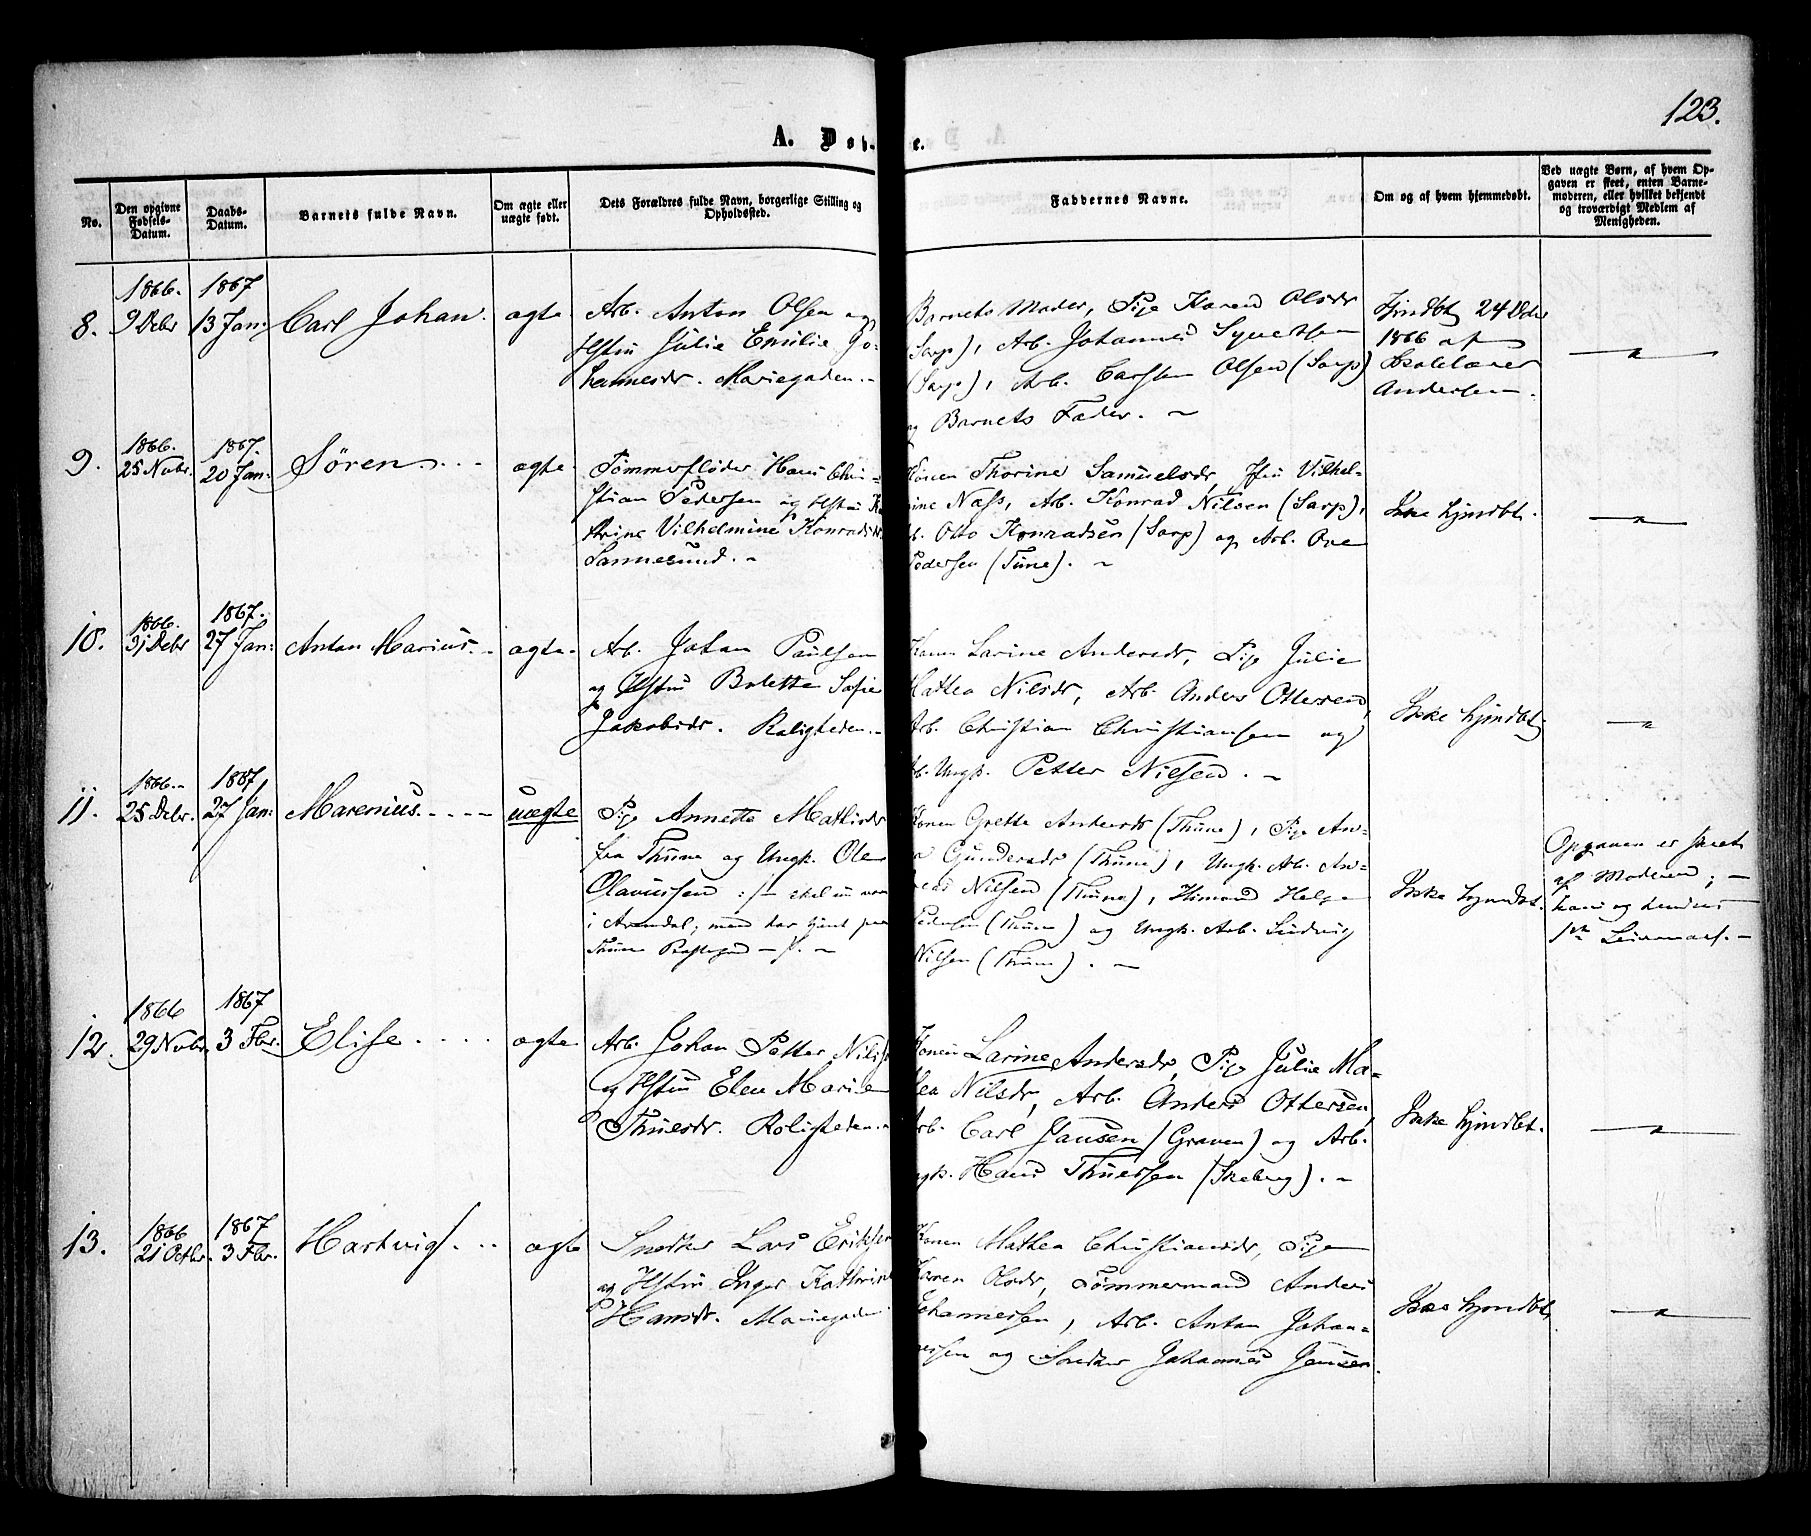 123.
A. Døbte.
No.
Den opgivne Fødsels-Datum.
Daabs-Datum.
Barnets fulde Navn.
Om ægte eller uægte født.
Dets Forældres fulde Navn, borgerlige Stilling og Opholdssted.
Faddernes Navne.
Om og af hvem hjemmedøbt.
Ved uægte Børn, af hvem Opgaven er skeet, enten Barnemoderen, eller hvilket bekjendt og troværdigt Medlem af Menigheden.
8.
1866.
9 Debr
1867
13 Jan:
Carl Johan.
ægte
Arb. Anton Olsen og
Hstru Julie Emilie Jo-
hannesdr. Mariegaden.-
Barnets Moder, Pige Karen Olsdr
(Sarp), Arb. Johannes Syvertsen
(Sarp), Arb. Carsten Olsen (Sarp)
og Barnets Fader. -
Hjmdbt 24 Debr
1866 af
Skolelærer
Andersen.
9.
1866.
25 Nvbr.
1867.
20 Jan:
Søren
ægte
Tømmerfløder Hans Chri-
stian Pedersen og Hstru Ka
thrine Vilhelmine Konradsdr.
Sannesund. -
Konen Thorine Samuelsdr, Vilhel-
mine Nass, Arb. Konrad Nilsen (Sarp),
Otto Konradsen (Sarp) og Arb. Ove
Pedersen (Tune). -
Ikke hjmdbt.
10.
1866.
31 Debr
1867.
27 Jan:
Anton Marius.
ægte.
Arb. Johan Paulsen
og Hstru Bolette Sofie
Jakobsdr. Roligheden.-
Konen Larine Andersdr, Pige Julie
Mathea Nilsdr, Arb. Anders Ottersen,
Arb. Christian Christiansen og
Arb. Ungk. Petter Nilsen. -
Ikke hjmdbt
11.
1866.
25 Debr.
1867
27 Jan:
Marenius.
uægte
Pige Annette Mathisdr
fra Thune og Ungk. Ole
Olaussen :/- skal nu være
i Arendal; men har tjent paa
Thune Præstegrd -/. -
Konen Grette Andersdr (Thune), Pige An-
Gundersdr (Thune), Ungk. Arb. An-
Nilsen (Thune), Helge
Pedersen (Thune) og Ungk. Arb. Ludvig
Nilsen (Thune). -
Ikke hjmdbt.
Opgaven er skeet
af Moderen; -
hans og hendes
1ste Leiermaal. -
12.
1866
29 Nvbr.
1867
3 Fbr.
Elise.
ægte
Arb. Johan Petter Nilsen
og Hstru Elen Marie
Thuesdr. Roligheden.-
Konen Larine Andersdr, Pige Julie Ma-
thea Nilsdr, Arb. Anders Ottersen,
Arb. Carl Hansen (Graven) og Arb.
Ungk. Hans Thuessen (Skeberg). -
Ikke hjmdbt.
13.
1866
21 Octbr.
1867
3 Fbr.
Hartvig.
ægte
Snedker Lars Eriksen
og Hstru Inger Kathrine
Hansdr. Mariegaden
Konen Mathea Christiansdr, Pige
Karen Olsdr, Tømmermand Anders
Johannessen, Arb. Anton Johan-
nessen og Snedker Johannes Jensen.
Ikke hjmdbt